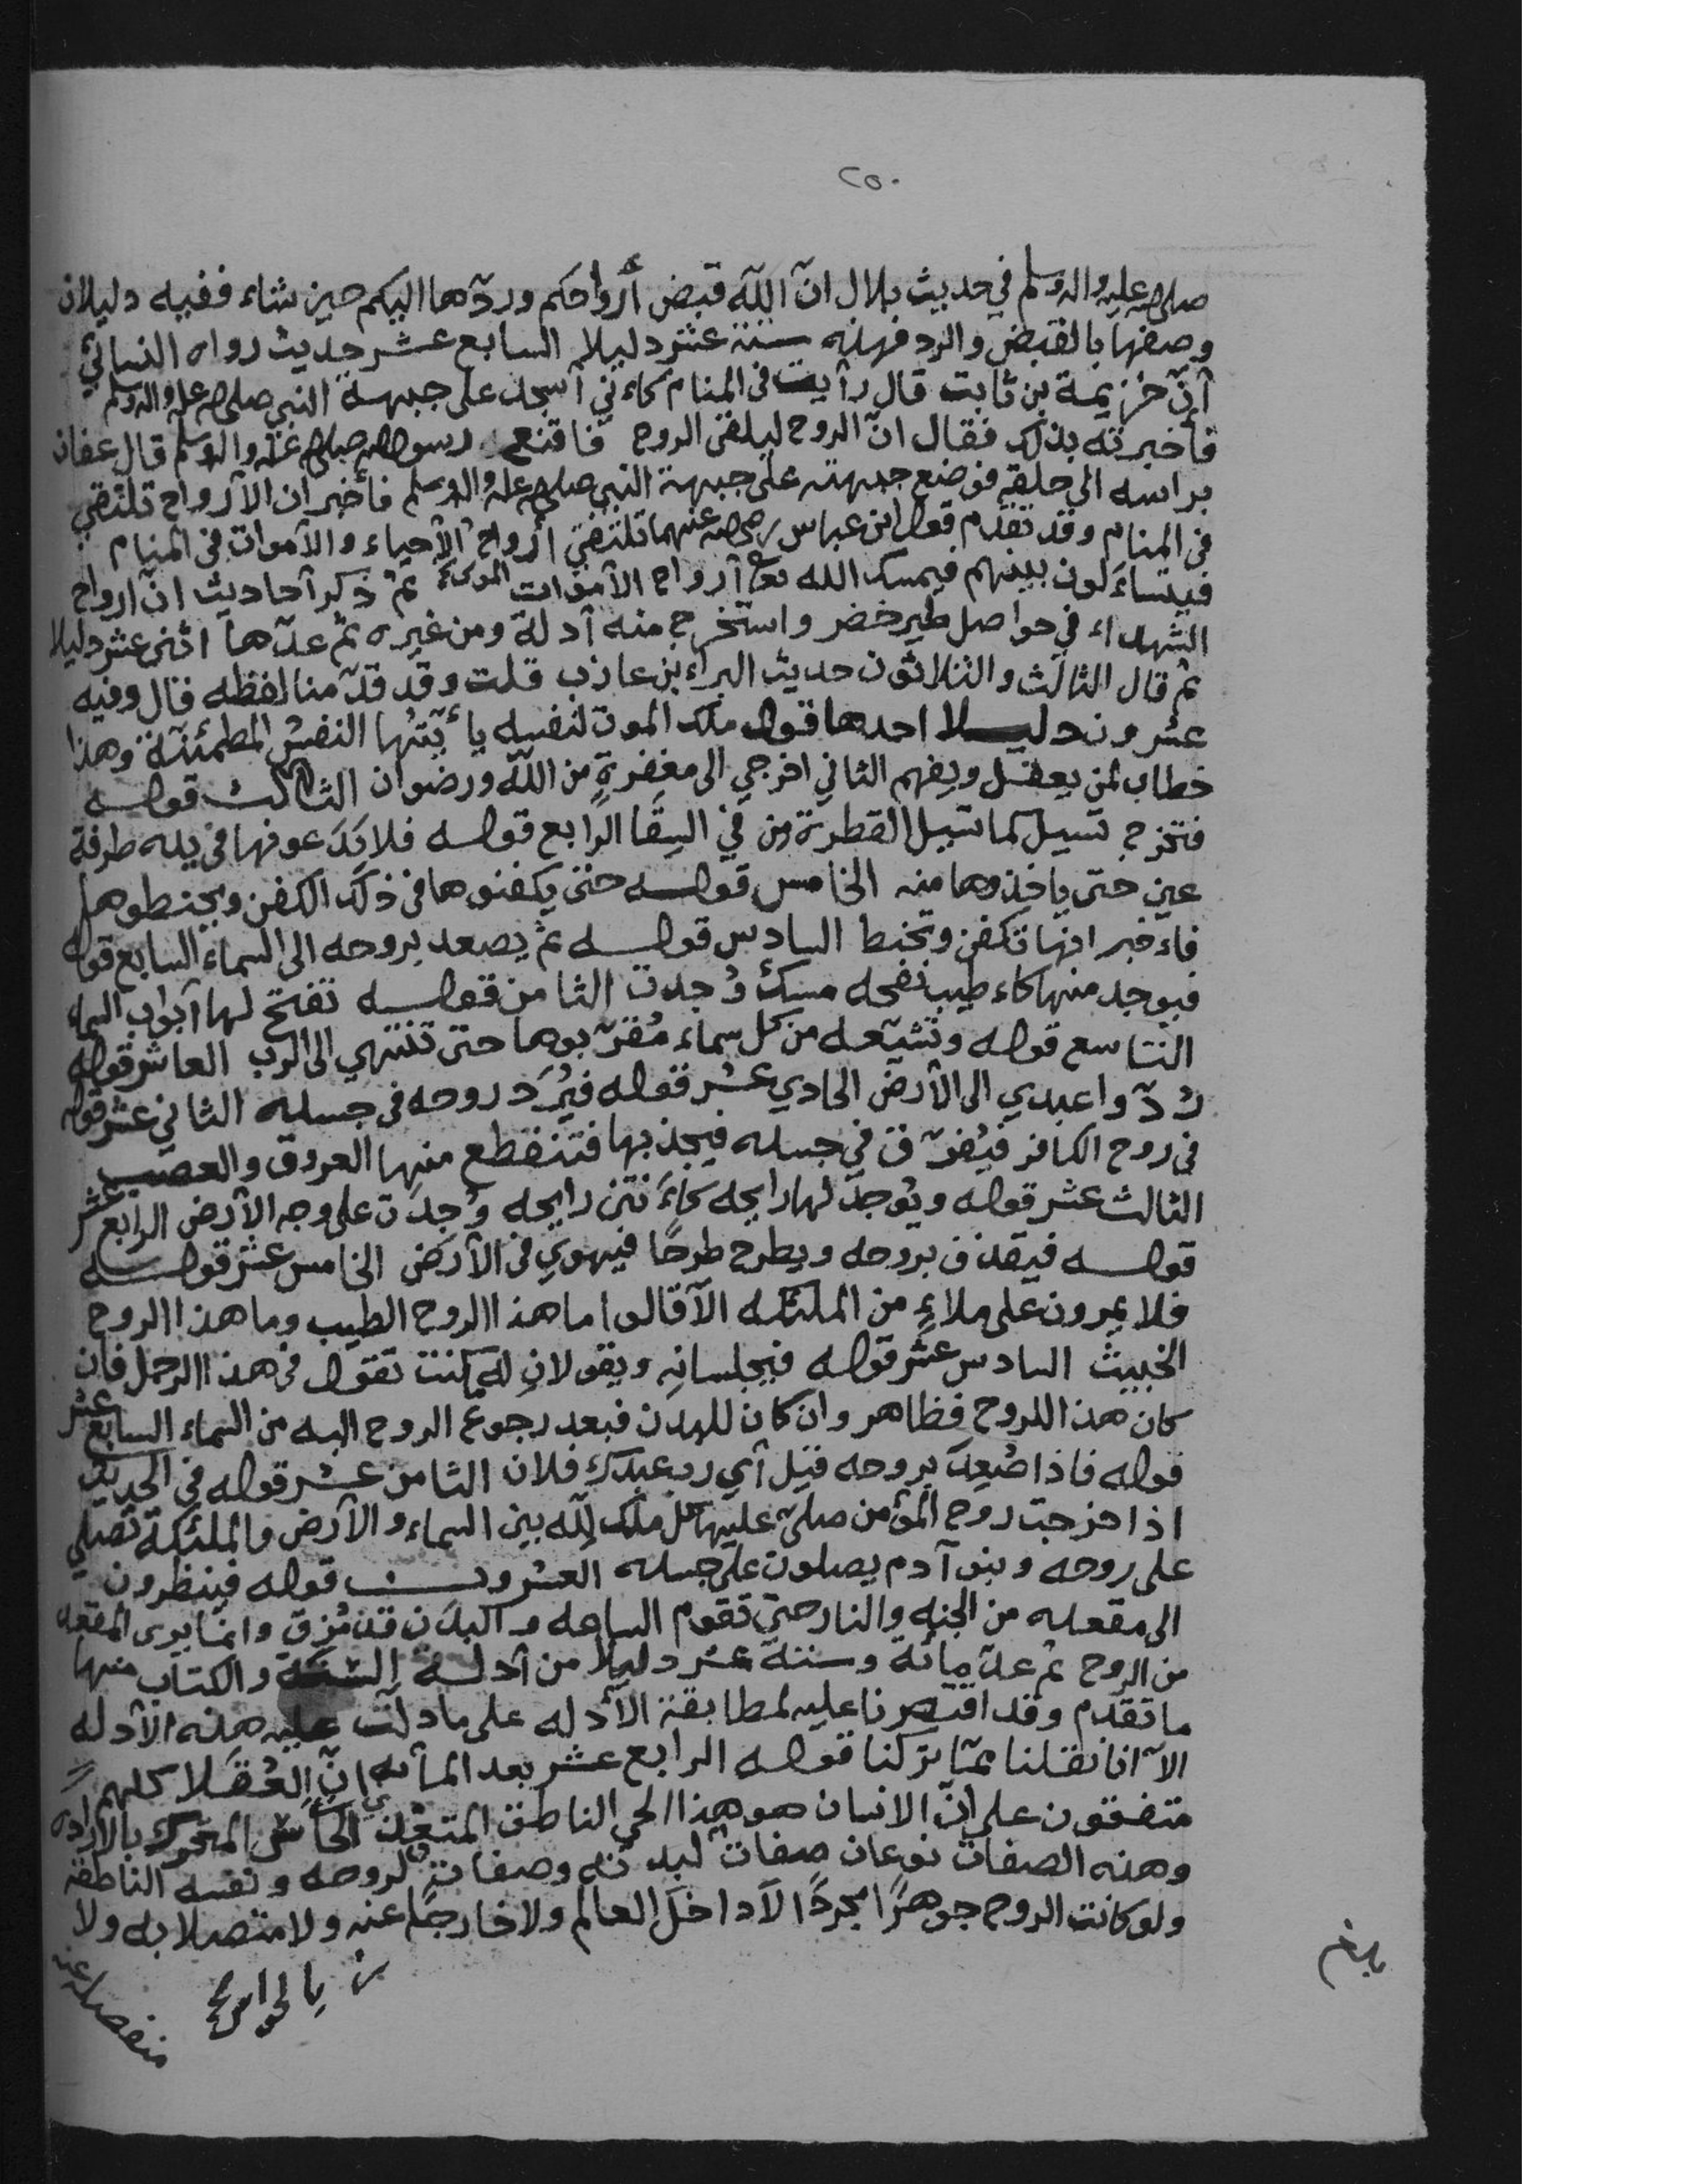 ٢٥٠
صلى الله عليه واله وسلم في حديث بلال انّ اللّه قبض أرواحكم وردّها اليكم حين شاء ففيه دليلان
وصفها بالقبض والرد فهذه ستة عشر دليلا السابع عشر حديث رواه النسائي
أنّ خزيمة بن ثابت قال رأيت في المنام كاءني أسجد على جبهة النبي صلى الله عليه واله وسلم
فأخبرته بذلك فقال انّ الروح ليلقى الروح فاقنع رسول الله صلى الله عليه واله وسلم قال عفان
براسه الى خلقه فوضع جبهته على جبهة النبي صلى الله عليه واله وسلم فأخبر ان الأرواح تلتقي
في المنام وقد تقدم قول ابن عباس رضي الله عنهما تلتقي أرواح الأحياء والأموات في المنام
فيتساءلون بينهم فيمسك الله تعالى أرواح الأموات الموتى ثم ذكر أحاديث انّ ارواح
الشهداء في حواصل طير خضر واستخرج منه أدلة ومن غيره ثم عدّها اثنى عشر دليلا
ثم قال الثالث والثلاثون حديث البراء بن عازب قلت وقد قدّمنا لفظه قال وفيه
عشرون دليلا احدها قول ملك الموت لنفسه ياأيّتها النفس المطمئنة وهذا
خطاب لمن يعقل ويفهم الثاني اخرجي الى مغفرةٍ من اللّه ورضوان الثالث قوله
فتخرج تسيل كما تسيل القطرة من في السقا الرابع قوله فلا يَدَعوفها في يده طرفة
عين حتى ياخذوها منه الخامس قوله حتى يكفنوها في ذلك الكفن ويحنطوها
فاءخبر انها تكفن وتحنط السادس قوله ثم يصعد بروحه الى السماء السابع قوله
فيوجد منها كاءطيب نفحه مسك وُجدت الثامن قوله تفتح لها أبواب السماء
التاسع قوله وتشيّعه من كل سماء مُقرّبوها حتى تنتهي الى الرب العاشر قوله
رُدّوا عبدي الى الأرض الحادي عشر قوله فيُرَد روحه في جسده الثاني عشر قوله
في روح الكافر فيُفرّق في جسده فيجذبها فتنقطع منها العروق والعصب
الثالث عشر قوله ويُوجد لها رايحه كاءَنتن رايحه وُجِدَت على وجه الأرض الرابع عشر
قوله فيقذف بروحه ويطرح طرحًا فيهوي في الأرض الخامس عشر قوله
فلا يمرون على ملاءٍ من الملئكه الاّ قالوا ما هذا الروح الطيب وما هذا الروح
الخبيث السادس عشر قوله فيجلسانِه ويقولانِ له ماكنت تقول في هذا الرجل فان
كان هذا للروح فظاهر وان كان للبدن فبعد رجوع الروح اليه من السماء السابع عشر
قوله فاذا صُعِدَ بروحه قيل أي رب عبدك فلان الثامن عشر قوله في الحديث
اذا خرجت روح المؤمن صلى عليها كل ملك للّه بين السماء والأرض والملئكة تصلي
على روحه وبنو آدم يصلون على جسده العشرون قوله فينظرون
الى مقعده من الجنه والنار حتى تقوم الساعه والبدَن قد مُزق وانما يرى المقعد
من الروح ثم عدّ مائة وستة عشر دليلاً من أدلة السنّة والكتاب منها
ما تقدم وقد اقتصرنا عليه لمطابقة الأدله على ما دلّت عليه هذه الأدله
الاّ انا نقلنا ممّا تركنا قوله الرابع عشر بعد المأيه انّ العُقَلا كلهم
متفقون على انّ الانسان هو هذا الحي الناطق المتغذي الحاسّ المتحرك بالاراده
وهذه الصفات نوعان صفات لبدنه وصفات لروحه ونفسه الناطقة
ولو كانت الروح جوهرًا مجردًا لا داخل العالم ولا خارجًا عنه ولا متصلا به ولا
منفصلا عنه